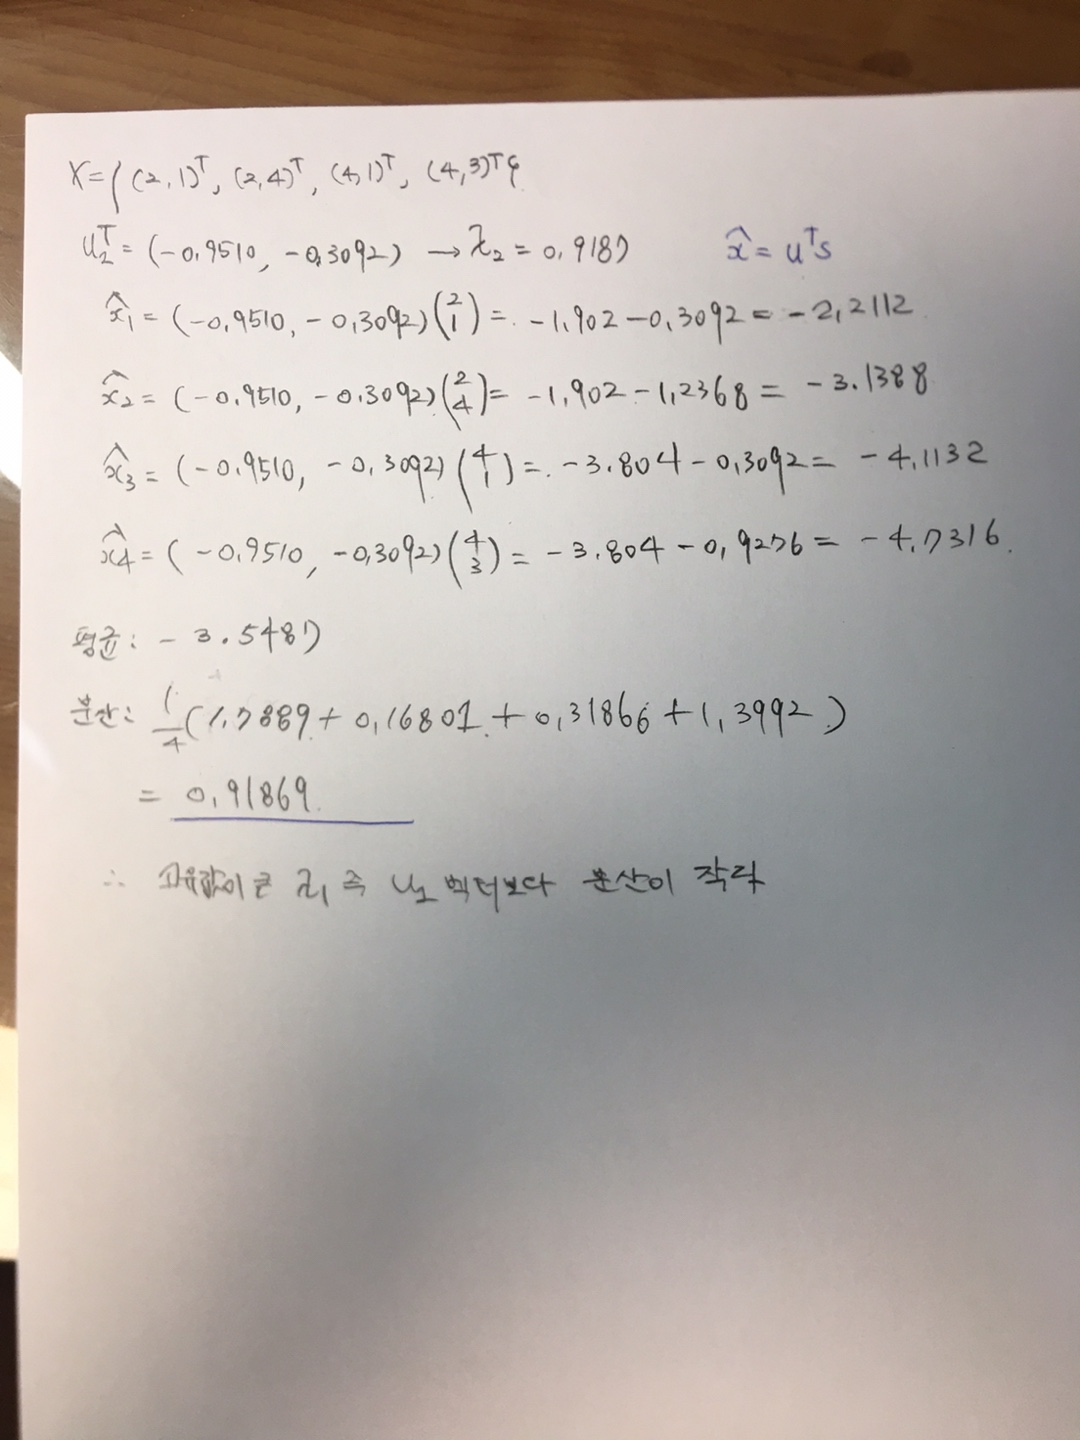 X={(2,1)ᵀ, (2,4)ᵀ, (4,1)ᵀ, (4,3)ᵀ}
u₂ᵀ = (-0,9510, -0,3092) → λ₂ = 0,9187 x̂ = uᵀs
x̂₁ = (-0,9510, -0,3092)(2 1) = -1,902-0,3092 = -2,2112
x̂₂ = (-0.9510, -0.3092)(2 4) = -1,902-1,2368 = -3.1388
x̂₃ = (-0.9510, -0,3092)(4 1) = -3.804-0,3092 = -4,1132
x̂₄ = (-0,9510, -0,3092)(4 3) = -3.804-0,9276 = -4.7316.
평균: -3.5487
분산: 1/4(1.7889+0,16801+0,31866+1,3992)
= 0,91869.
∴ 고유값이 큰 λ₁ 즉 u₁ 벡터보다 분산이 작다